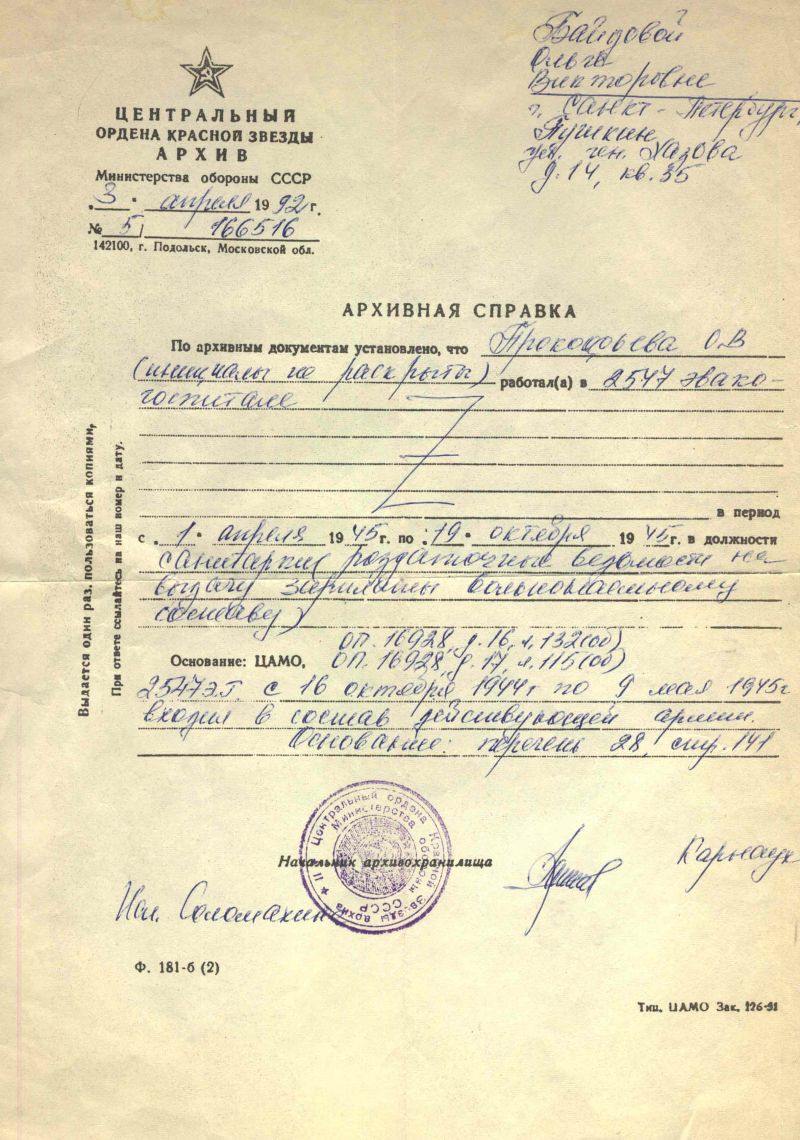 Байдовой
Ольге
Викторовне
г. Санкт-Петербург,
Пушкин
ул. ген. Хазова
д. 14, кв. 35
ЦЕНТРАЛЬНЫЙ
ОРДЕНА КРАСНОЙ ЗВЕЗДЫ
АРХИВ
Министерства обороны СССР
„3“ апреля 1992 г.
№ 5/ 166516
142100, г. Подольск, Московской обл.
АРХИВНАЯ СПРАВКА
По архивным документам установлено, что Прокофьева О.В
(инициалы не раскрыты) работал(а) в 2547 эвако-
госпитале
в период
с „1“ апреля 1945 г. по „19“ октября 1945 г. в должности
санитарки раздаточные ведомости на
выдачу зарплаты вольнонаемному
составу)
оп. 16928, д. 16, л. 132(об)
Основание: ЦАМО, оп. 16928, д. 17, л. 115(об)
2547 ЭГ с 16 октября 1944 г по 9 мая 1945 г
входил в состав действующей армии.
Основание: перечень 28, стр. 141
Начальник архивохранилища
Карнаух
Исп. Соломахин
Центральный ордена Красной Звезды архив
Министерства обороны СССР
Ф. 181-б (2)
Тип. ЦАМО Зак. 126-91
Выдается один раз, пользоваться копиями,
При ответе ссылайтесь на наш номер и дату.